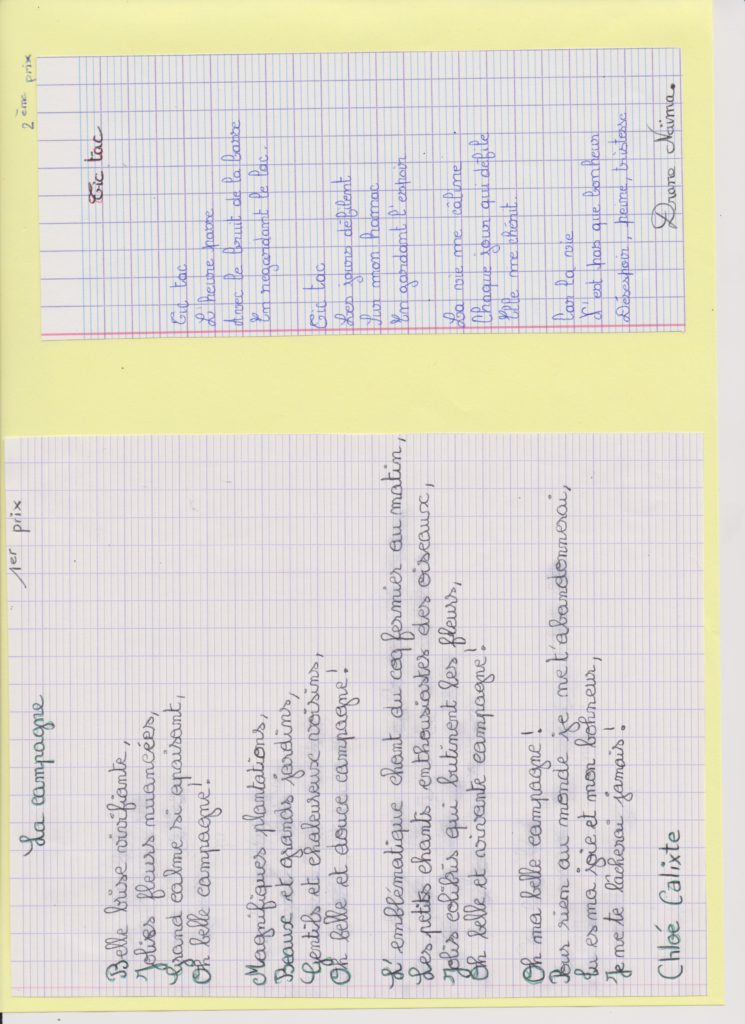 1er prix
La campagne
Belle brise vivifiante,
Jolies fleurs nuancées,
Grand calme si apaisant,
Oh belle campagne!
Magnifiques plantations,
Beaux et grands jardins,
Gentils et chaleureux voisins,
Oh belle et douce campagne!
L'emblématique chant du coq fermier au matin,
Les petits chants enthousiastes des oiseaux,
Jolis colibris qui butinent les fleurs,
Oh belle et vivante campagne!
Oh ma belle campagne!
Pour rien au monde je ne t'abandonnerai,
Tu es ma joie et mon bohneur,
Je ne te lâcherai jamais!
Chloé Calixte
2ème prix
Tic tac
Tic tac
L'heure passe
Avec le bruit de la basse
En regardant le lac.
Tic tac
Les jours défilent
Sur mon hamac
En gardant l'espoir
La vie me câline
Chaque jour qui défile
Elle me chérit.
Car la vie
N'est pas que bonheur
Désespoir, peine, tristesse
Diane Naïma.